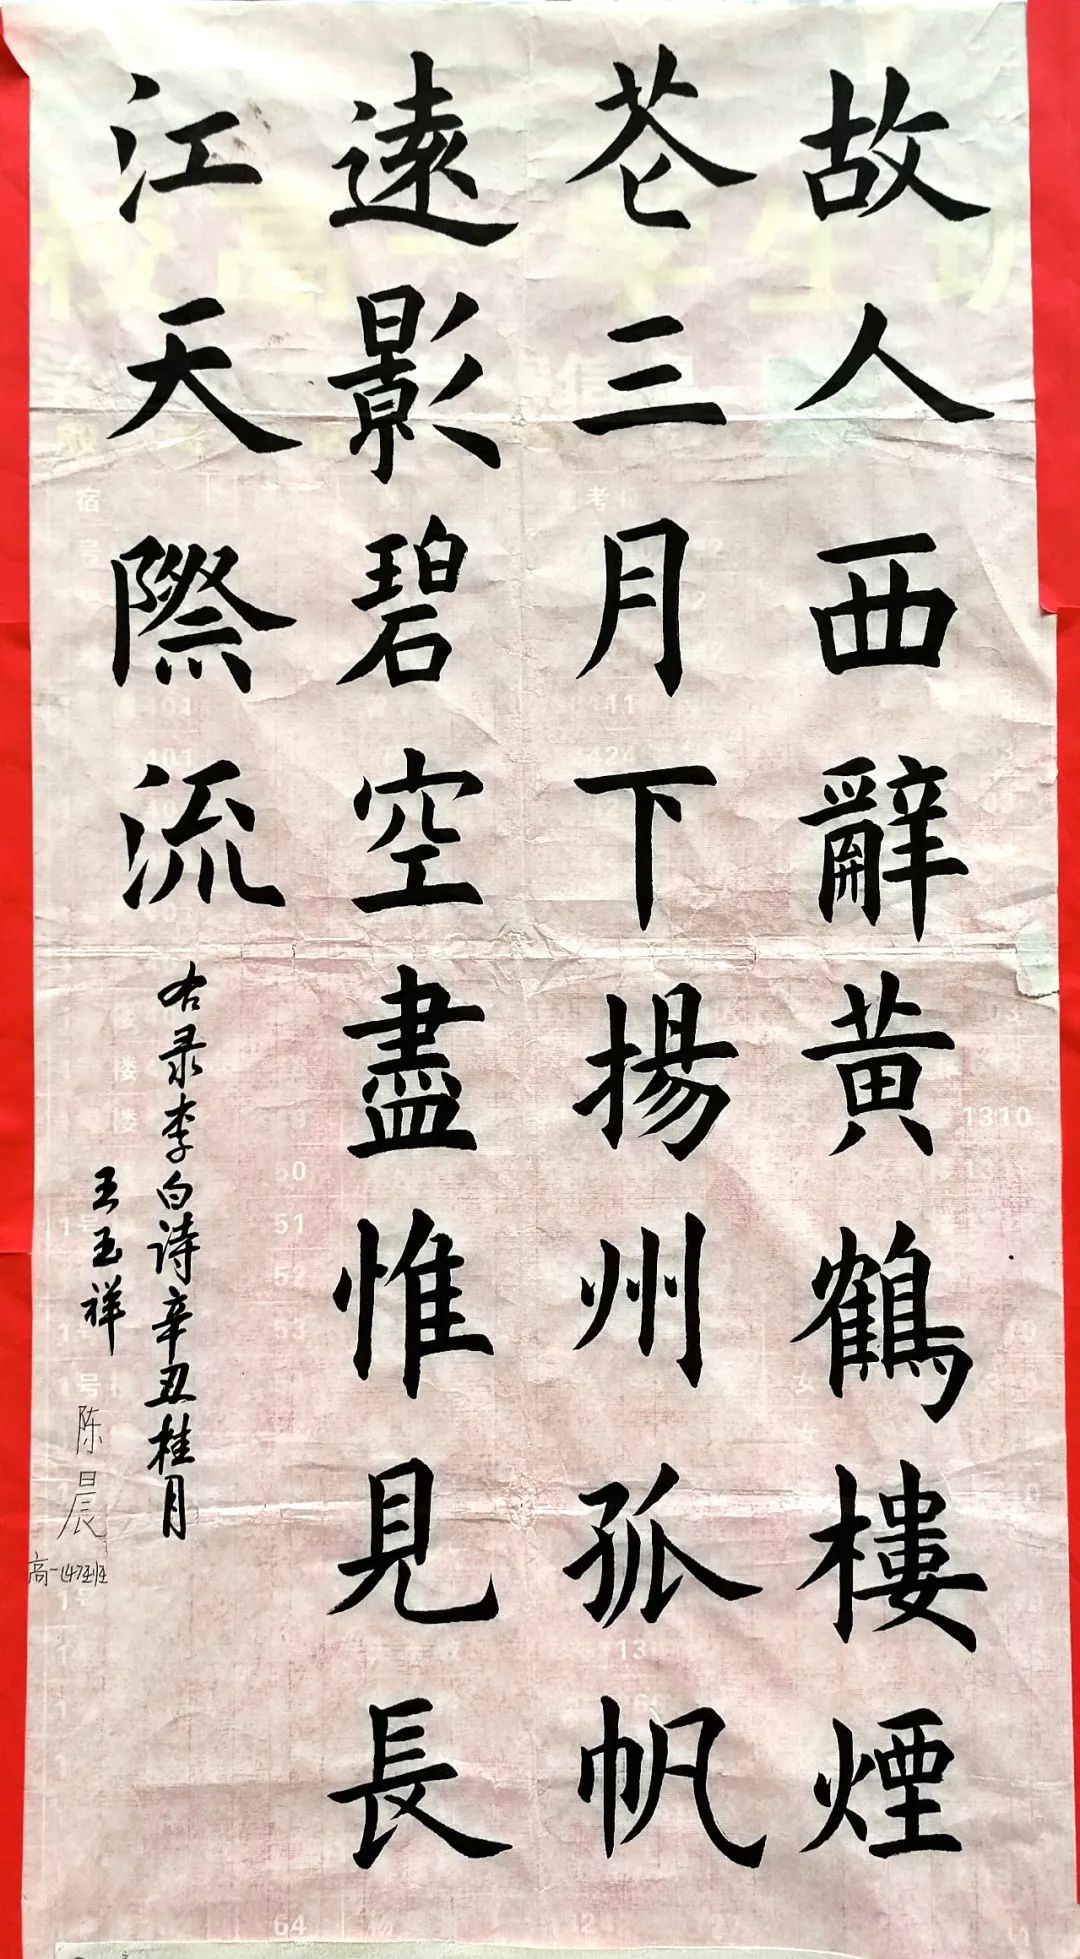 故人西辭黄鶴樓煙
苍三月下揚州孤帆
遠影碧空盡惟見長
江天際流
右录李白诗辛丑桂月
王玉祥
陈晨
高一147班